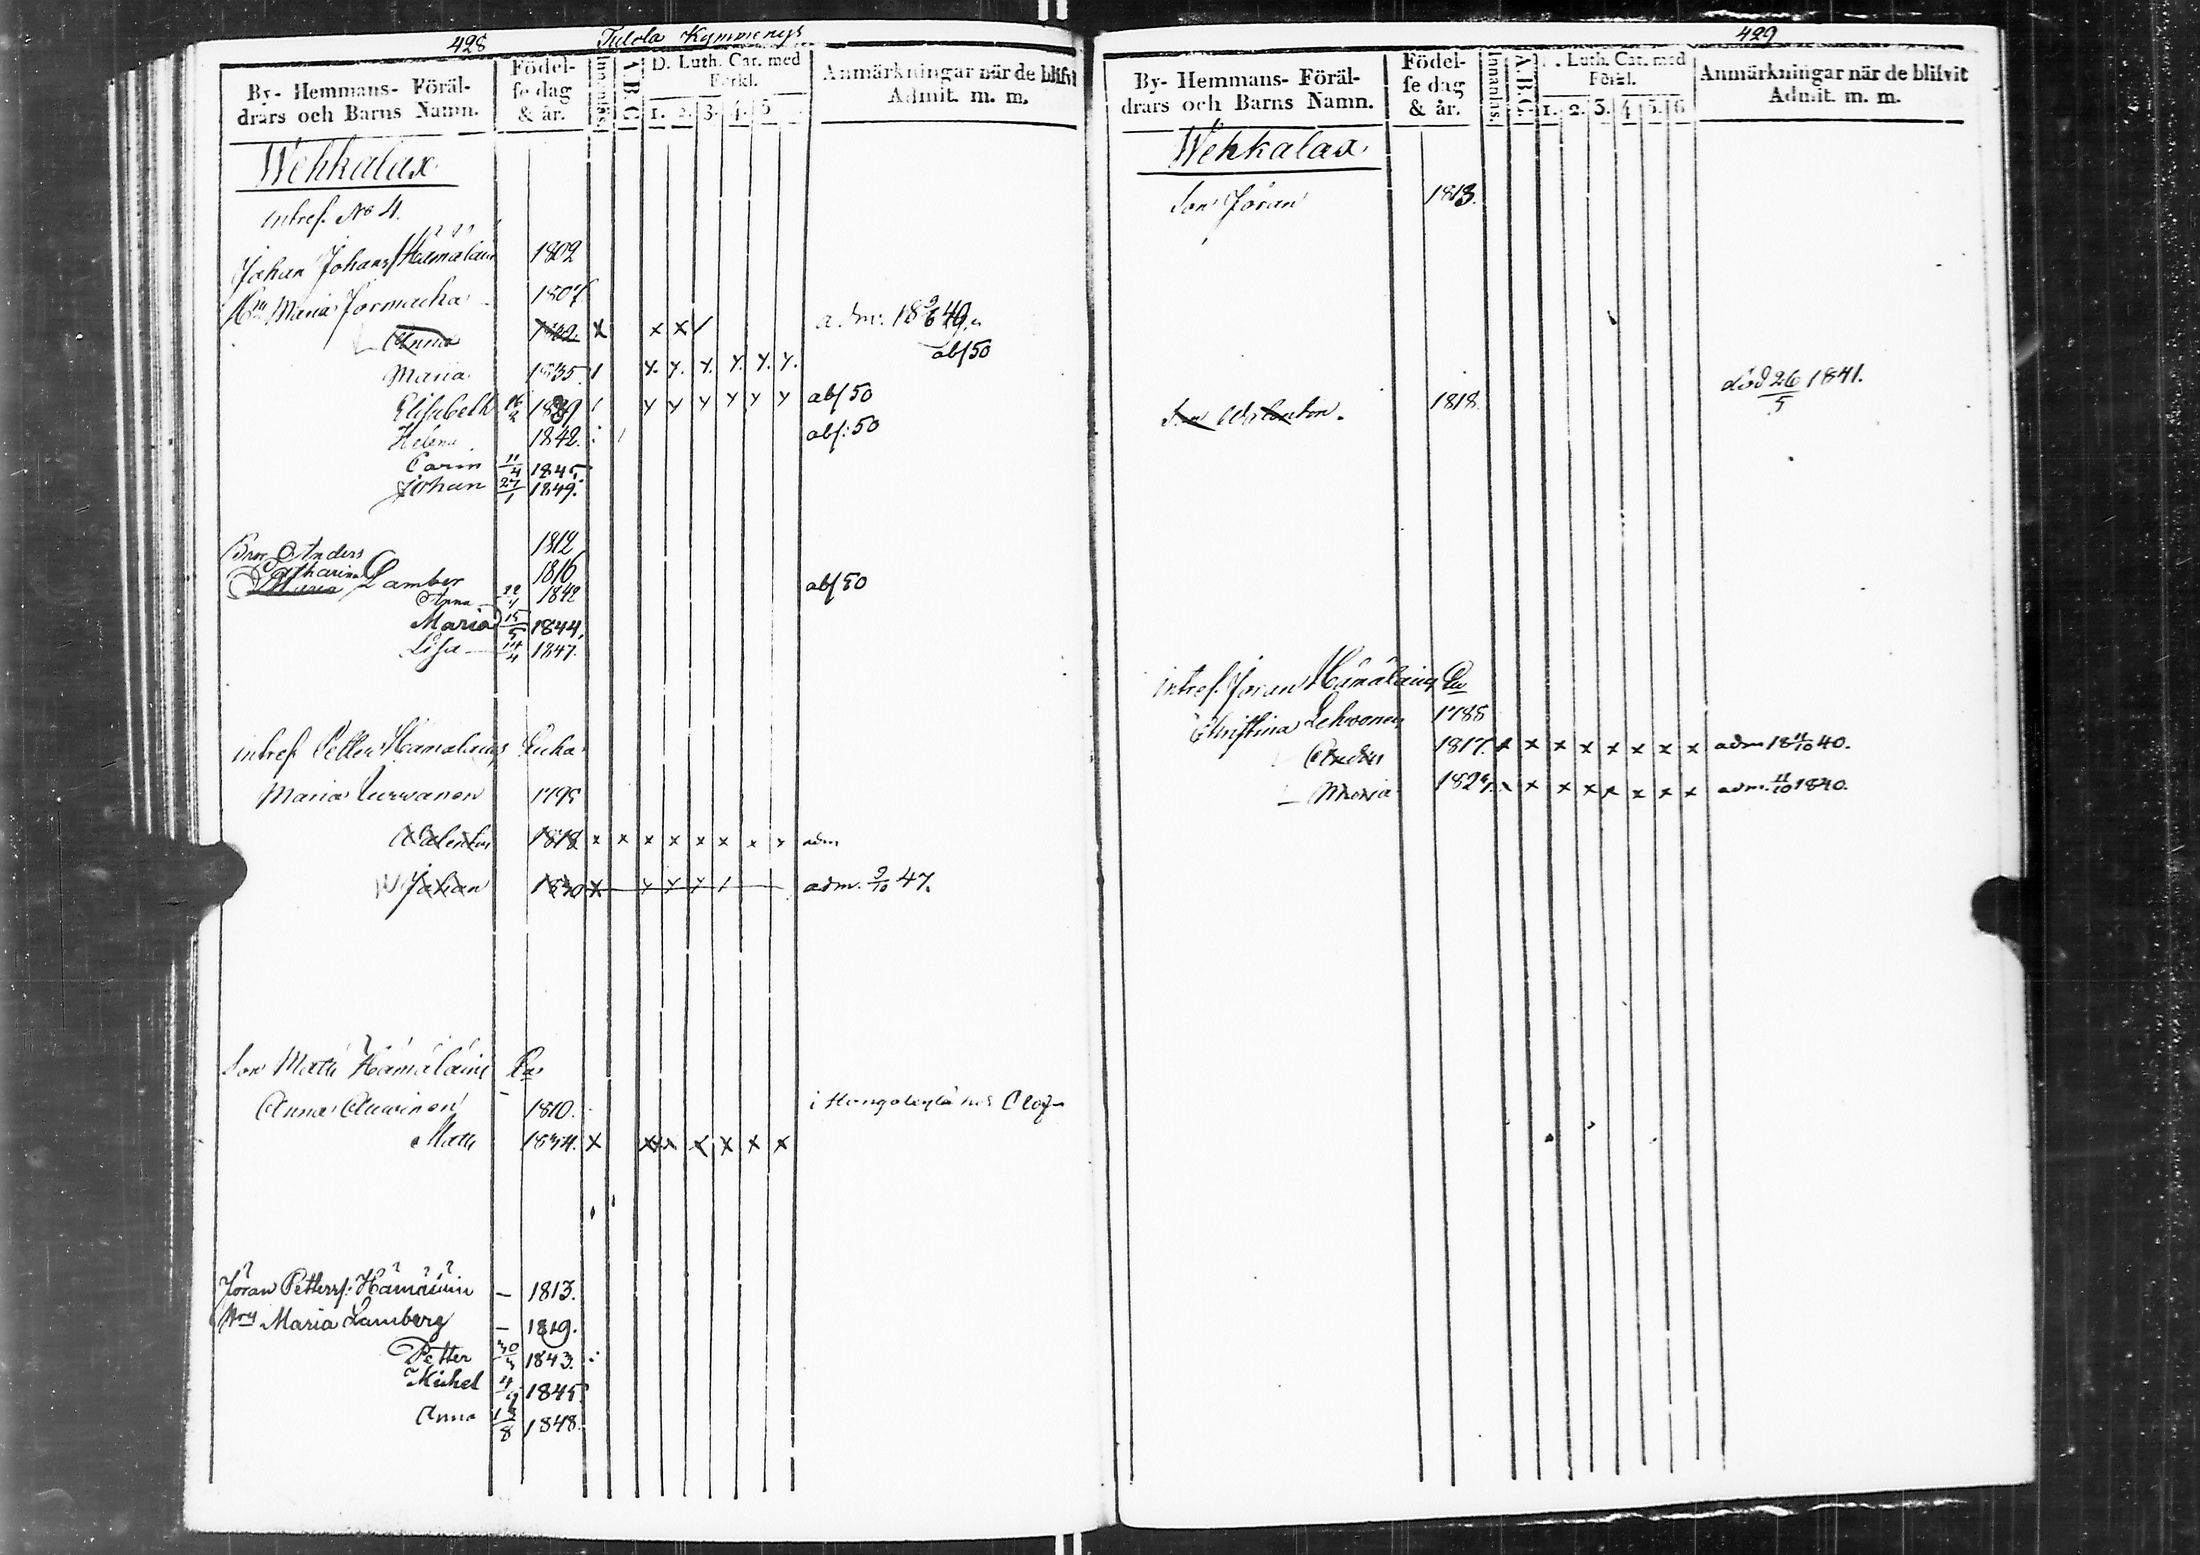 428
Tulola Kymmenegs
By- Hemmans- Föräl-
drars och Barns Namn.
Födel-
se dag
& år.
Innanläs.
A.B.C.
D. Luth. Cat. med
Förkl.
1. 2. 3. 4. 5
Anmärkningar när de blifvit
Admit. m. m.
Wehkalax
intres. No 4.
Johan Johans Hämäläin 1802
Maria 1807
Anna 1832 x x x / adm. 18 9/6 49.
abs 50
Maria 1835
Elisabeth 16/2 1839 abs 50
Helena 1842. abs: 50
Carin 11/4 1845.
Johan 27/1 1849.
Bror Anders 1812
Catharina 1816
Maria Lamber abs 50
Anna 22/4 1842
Maria 15/5 1844.
Lisa 14/4 1847.
intres Petter Hämäläins Enka
Maria Kurwanen 1795
Valentin 1818 x x x x x x x x adm
Johan 1830 x adm. 9/10 47.
Son Matts Hämäläins
Anna Auwinen 1810.
Matts 1834. x x x x x x x
Jöran Petterss: Hämäläin — 1813.
Maria Lamberg — 1819.
Petter 30/3 1843.
Michel 4/9 1845
Anna 1848.
429
By- Hemmans- Föräl-
drars och Barns Namn.
Födel-
se dag
& år.
Innanläs.
A.B.C.
D. Luth. Cat. med
Förkl.
1. 2. 3. 4 5. 6
Anmärkningar när de blifvit
Admit. m. m.
Wehkalax
Son Jöran 1813.
Son 1818. död 26/5 1841.
intres. Jöran Hämäläin
Christina Lehwonen 1788
Anders 1817. x x x x x x x x adm 18 11/10 40.
Maria 1824. x x x x x x x x adm. 11/10 1840.